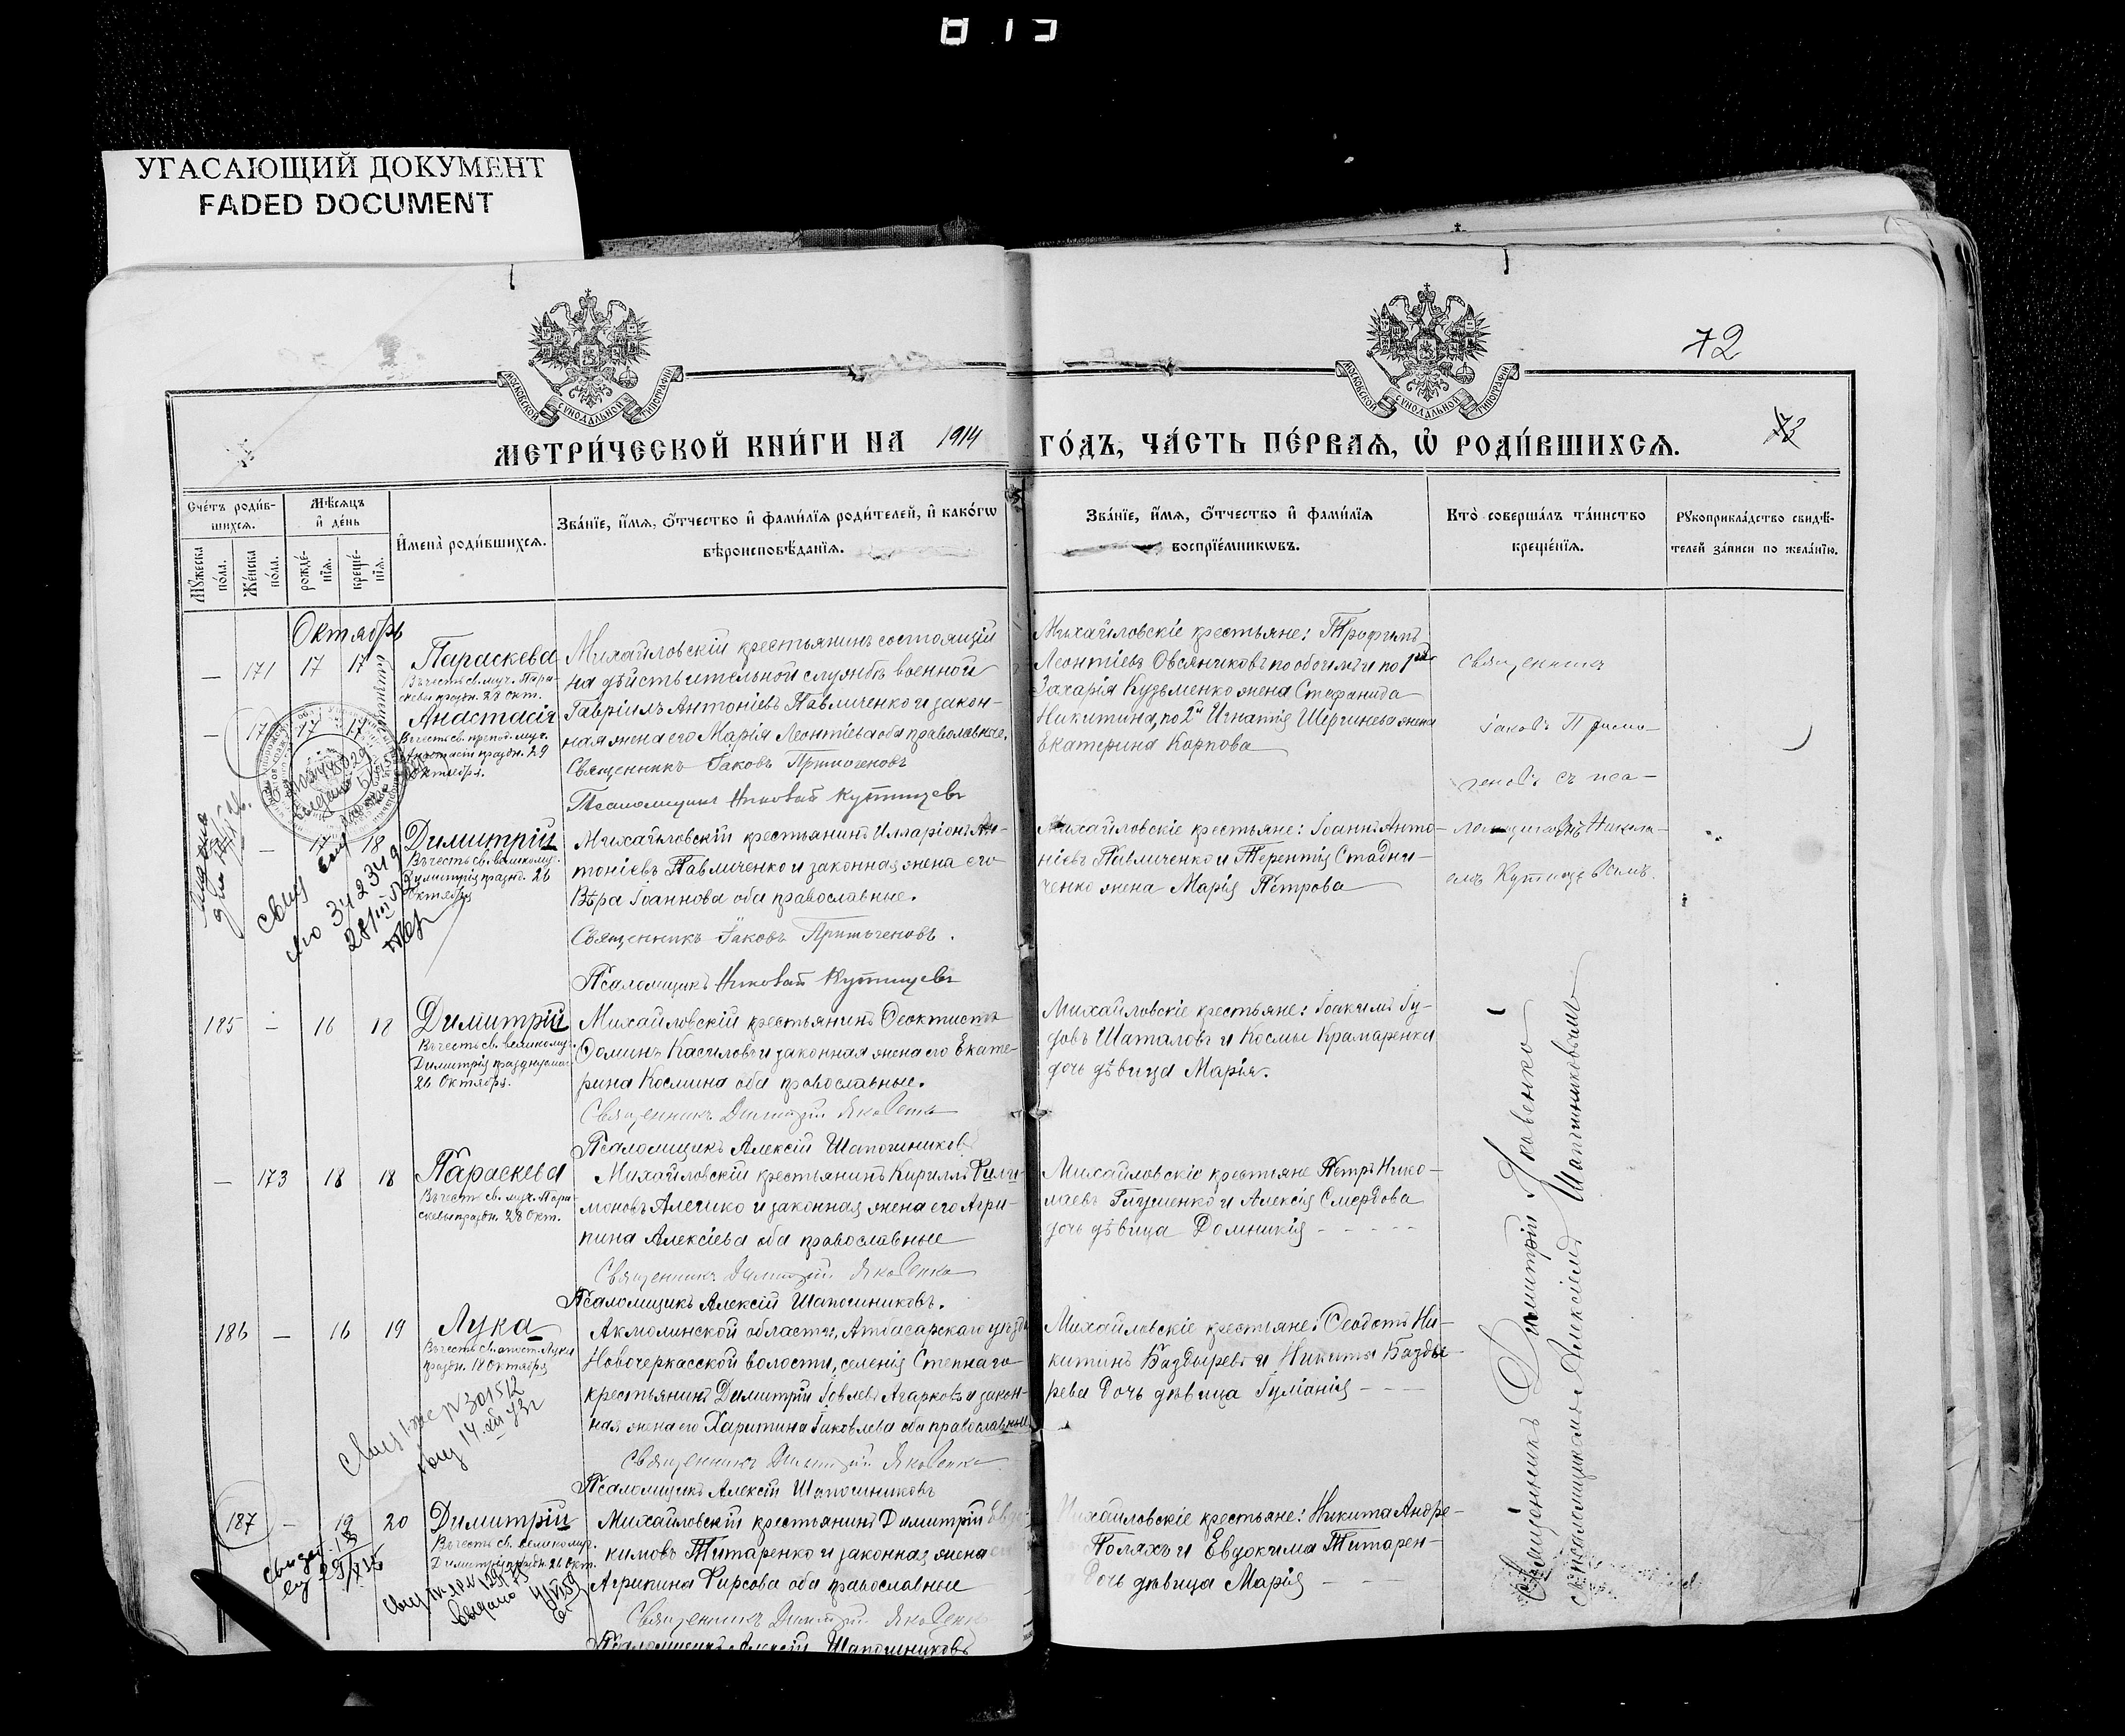 УГАСАЮЩИЙ ДОКУМЕНТ
FADED DOCUMENT
72
МОСКОВСКОЙ СѴНОДАЛЬНОЙ ТИПОГРАФІИ
МОСКОВСКОЙ СѴНОДАЛЬНОЙ ТИПОГРАФІИ
МЕТРИ́ЧЕСКОЙ КНИ́ГИ НА 1914 ГО́ДЪ, ЧА́СТЬ ПЕ́РВАѦ, Ѡ РОДИ́ВШИХСѦ.
Сче́тъ роди́в-
шихсѧ.
Мꙋ́жеска
по́ла.
Же́нска
по́ла.
Мѣ́сѧцъ
и́ де́нь
рожде́-
нїѧ.
креще́-
нїѧ.
И҆мена̀ роди́вшихсѧ.
Зва́нїе, и҆́мѧ, ѻ҆́тчество и҆ фами́лїѧ роди́телей, и҆ како́гѡ
вѣроисповѣ́данїѧ.
Зва́нїе, и҆́мѧ, ѻ҆́тчество и҆ фами́лїѧ
воспрїе́мникѡвъ.
Кто̀ соверша́лъ та́инство
креще́нїѧ.
Рꙋкоприкла́дство свидѣ́-
телей за́писи по жела́нїю.
Октябрь
— 171 17 17
Параскева
Въ честь св. муч. Пара-
скевы праздн. 28 окт.
Анастасія
Въ честь св. препод. муч.
Анастасіи праздн. 29
Октября.
Михайловскій крестьянинъ состоящій
на дѣйствительной службѣ военной
Гавріилъ Антоніевъ Павличенко и закон-
ная жена его Марія Леонтіева оба православные.
Священникъ Іаковъ
Псаломщикъ Николай
Михайловскіе крестьяне: Трофимъ
Леонтіевъ Овсянниковъ по обоимъ и по 1й
Захарія Кузьменко жена Стефанида
Никитина, по 2й Игнатія жена
Екатерина Карпова
Священникъ
Іаковъ
съ пса-
ломщикомъ Никола-
емъ
— 18
Димитрій
Въ честь св. великому.
Димитрія праздн. 26
Октября
Михайловскій крестьянинъ Илларіонъ Ан-
тоніевъ Павличенко и законная жена его
Вѣра Іоаннова оба православные.
Священникъ Іаковъ
Псаломщикъ Николай
Михайловскіе крестьяне: Іоаннъ Анто-
ніевъ Павличенко и Терентія Стадни-
ченко жена Марія Петрова
185 — 16 18
Димитрій
Въ честь св. великому.
Димитрія празднуемаго
26 Октября.
Михайловскій крестьянинъ Ѳеоктистъ
Ѳоминъ Касиловъ и законная жена его Екате-
рина Космина оба православные.
Священникъ Димитрій Яковенко
Псаломщикъ Алексій Шапошниковъ
Михайловскіе крестьяне: Іоакимъ Іу-
довъ Шаталовъ и Космы Крамаренки
дочь дѣвица Марія.
— 173 18 18
Параскева
Въ честь св. муч. Пара-
скевы праздн. 28 Окт.
Михайловскій крестьянинъ Кириллъ Фили-
моновъ и законная жена его Агри-
пина Алексіева оба православные
Священникъ Димитрій Яковенко
Псаломщикъ Алексій Шапошниковъ.
Михайловскіе крестьяне Петръ Нико-
лаевъ Глушенко и Алексія Смердова
дочь дѣвица Домникія
186 — 16 19
Лука
Въ честь св. апост. Луки
праздн. 18 Октября
Акмолинской области, Атбасарскаго уѣзда
Новочеркасской волости, селенія Степнаго
крестьянинъ Димитрій Іовлевъ Агарковъ и закон-
ная жена его Харитина Іаковлева оба православные
Священникъ Димитрій Яковенко
Псаломщикъ Алексій Шапошниковъ
Михайловскіе крестьяне: Ѳеодотъ Ни-
китинъ Баздыревъ и Никиты Базды-
рева дочь дѣвица Іуліанія
187 — 19 20
Димитрій
Въ честь св. великому.
Димитрія праздн. 26 Окт.
Михайловскій крестьянинъ Димитрій
кимовъ Титаренко и законная жена
Агрипина Фирсова оба православные
Священникъ Димитрій Яковенко
Псаломщикъ Алексій Шапошниковъ
Михайловскіе крестьяне: Никита Андре-
Поляхъ и Евдокима Титарен-
дочь дѣвица Марія
Священникъ Димитрій Яковенко
съ псаломщикомъ Алексіемъ Шапошниковымъ